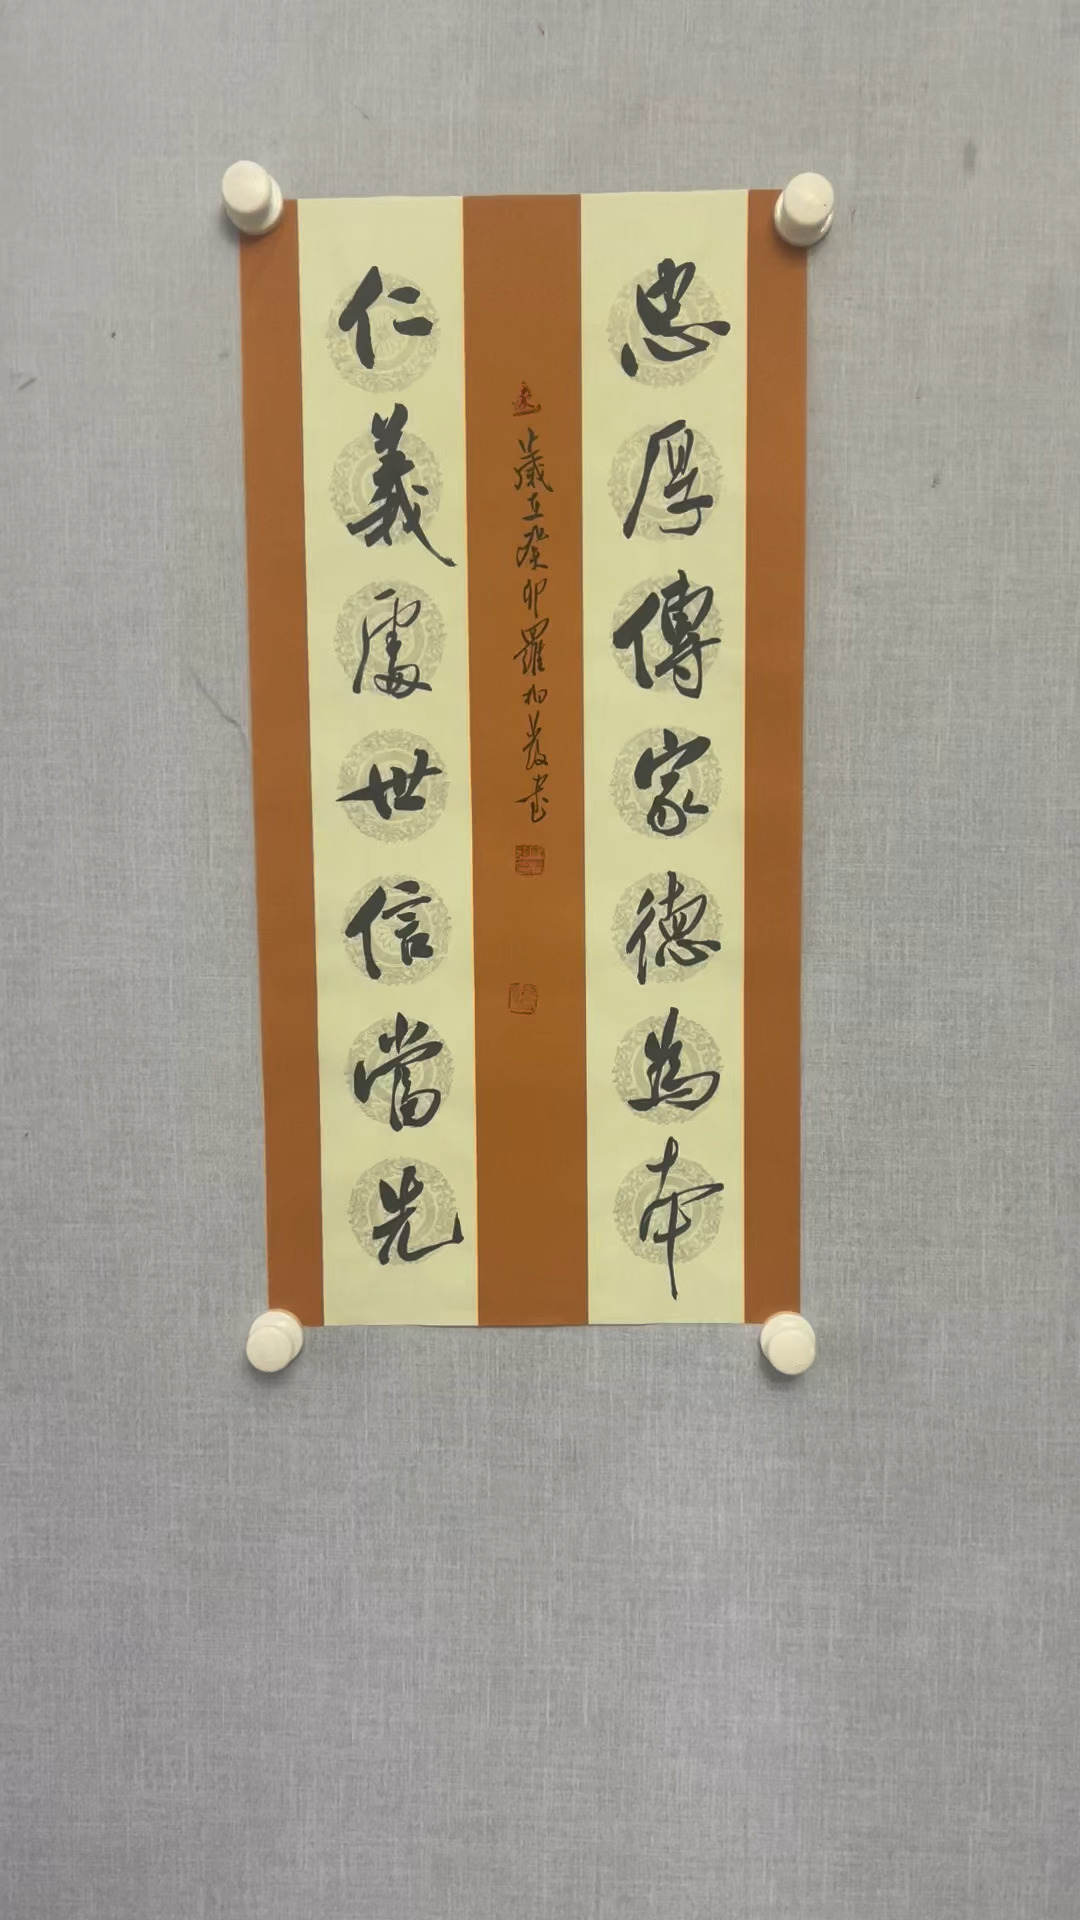 忠厚傳家德為本
歲在癸卯羅柏發書
仁義處世信當先